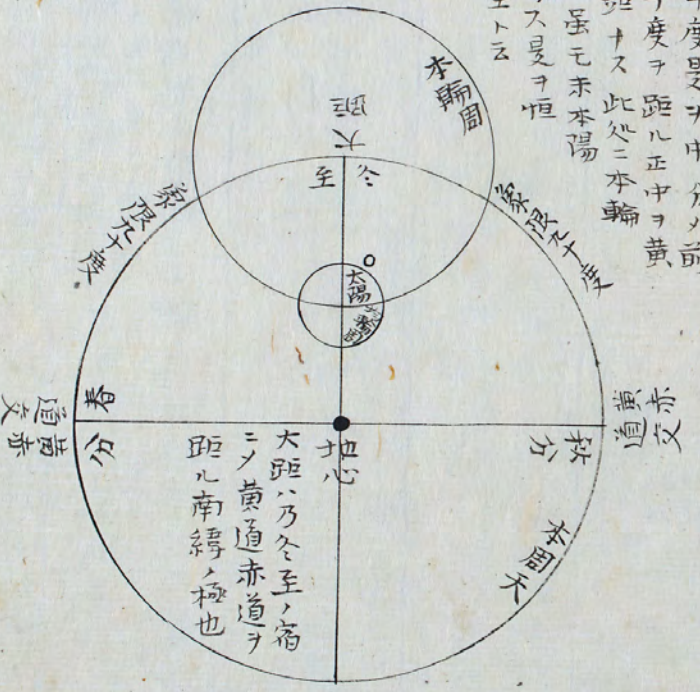 度ヲ距ル正中ヲ黄
距トス此処ニ本輪
虽モ未本陽
ス是ヲ恒
ト云
本輪周
大距
冬至
象限九十度
象限九十度
太陽
春分
秋分
黄赤道交
黄赤道交
地心
本周天
大距ハ乃冬至ノ宿
ニメ黄道赤道ヲ
距ル南緯ノ極也